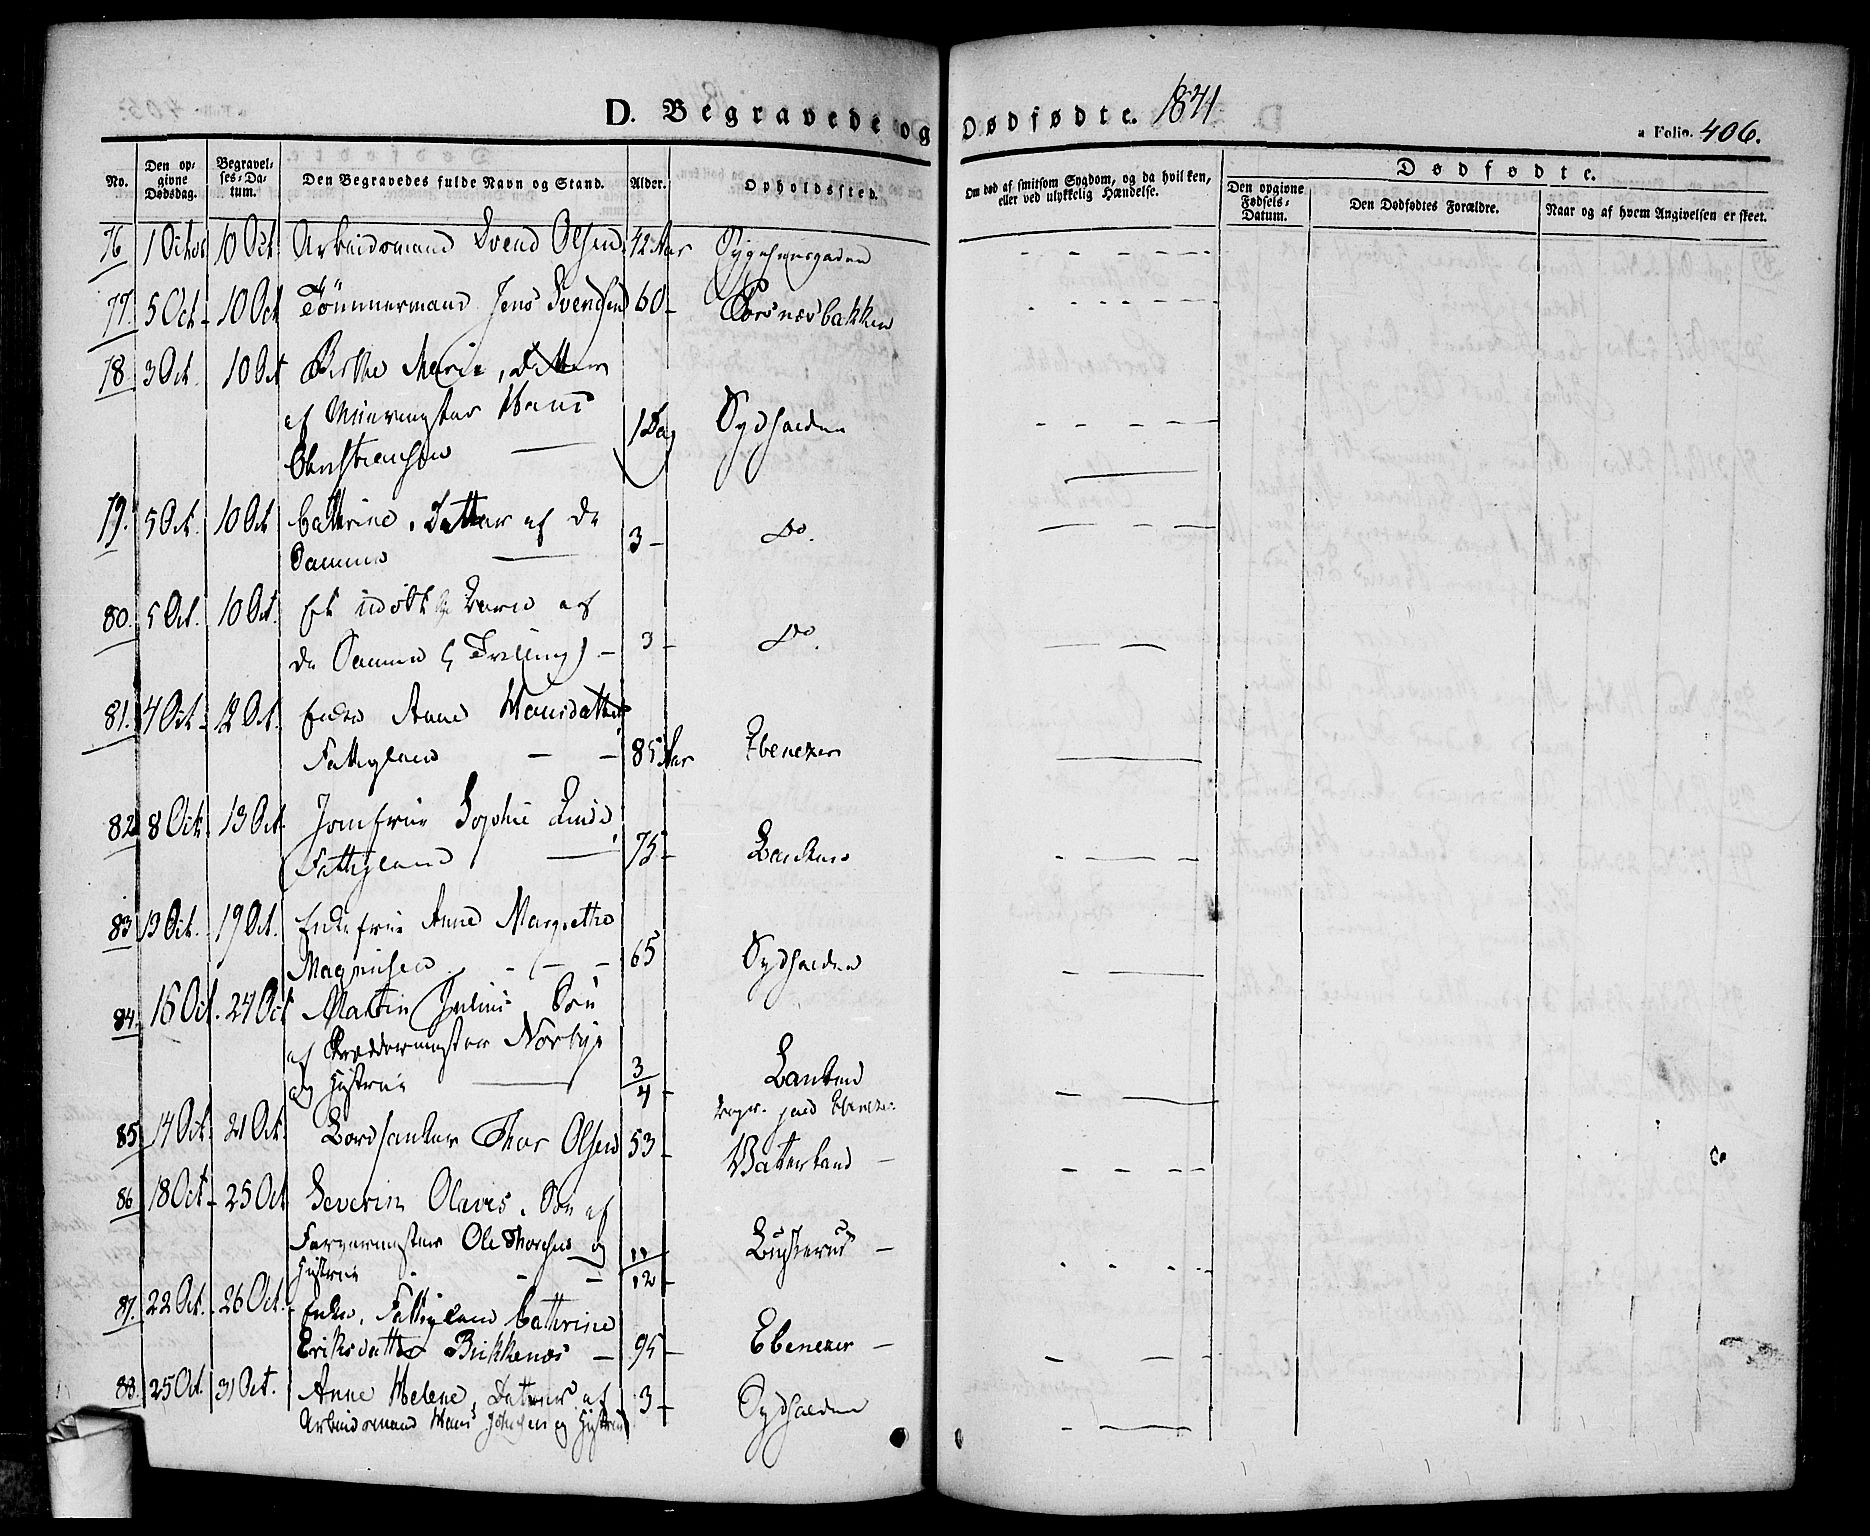 D. Begravede og Dødfødte. 1841
a Folio. 406.
No. Den opgivne Dødsdag. Begravelses-Datum. Den Begravedes fulde Navn og Stand. Alder. Opholdssted. Om død af smitsom Sygdom, og da hvilken, eller ved ulykkelig Hændelse. Dødfødte.
Den opgivne Fødsels-Datum. Den Dødfødtes Forældre. Naar og af hvem Angivelsen er skeet.
76 1 Octob 10 Oct Arbeidsmand Svend Olsen 42 Aar
77. 5 Oct 10 Oct Tömmermand Jens Svendsen 60 - Torsnæsbakken
78 3 Oct. 10 Oct Birthe Marie, Datter
af Muurmester Hans
Christiansen 1 Dag Sydhalden
79. 5 Oct. 10 Oct Cathrine, Datter af de
Samme 3 - Do.
80. 5 Oct. 10 Oct. Et udöbt Barn af
de Samme (Trilling) - 3 - Do.
81. 4 Oct. 12 Oct. Enke Anne Hansdatter
Fattiglem 85 Aar Ebenezer
82 8 Oct. 13 Oct. Jomfrue Sophie
Fattiglem 75 - Banken
83 13 Oct. 19 Oct. Enkefrue Anne Margrethe
Magnusen 65 Sydhalden
84. 16 Oct. 24 Oct Martin Julius Sön
af Skræddermester Norbye
og Hustrue 3/4 - Banken
Begr. paa Ebenezer
85 14 Oct. 21 Oct. Bordsanker Thor Olsen 53 - Vaterland -
86 18 Oct - 25 Oct Severin Olaves, Sön af
Farvermester Ole Thoresen og
Hustrue 11/12 -
87. 22 Oct. 26 Oct. Enke, Fattiglem Cathrine
Eriksdatter Bukkenæs - 95 - Ebenezer -
88. 25 Oct. 31 Oct. Anne Helene, Datter af 3 - Sydhalden
Arbeidsmand Hans Johnsen og Hustrue